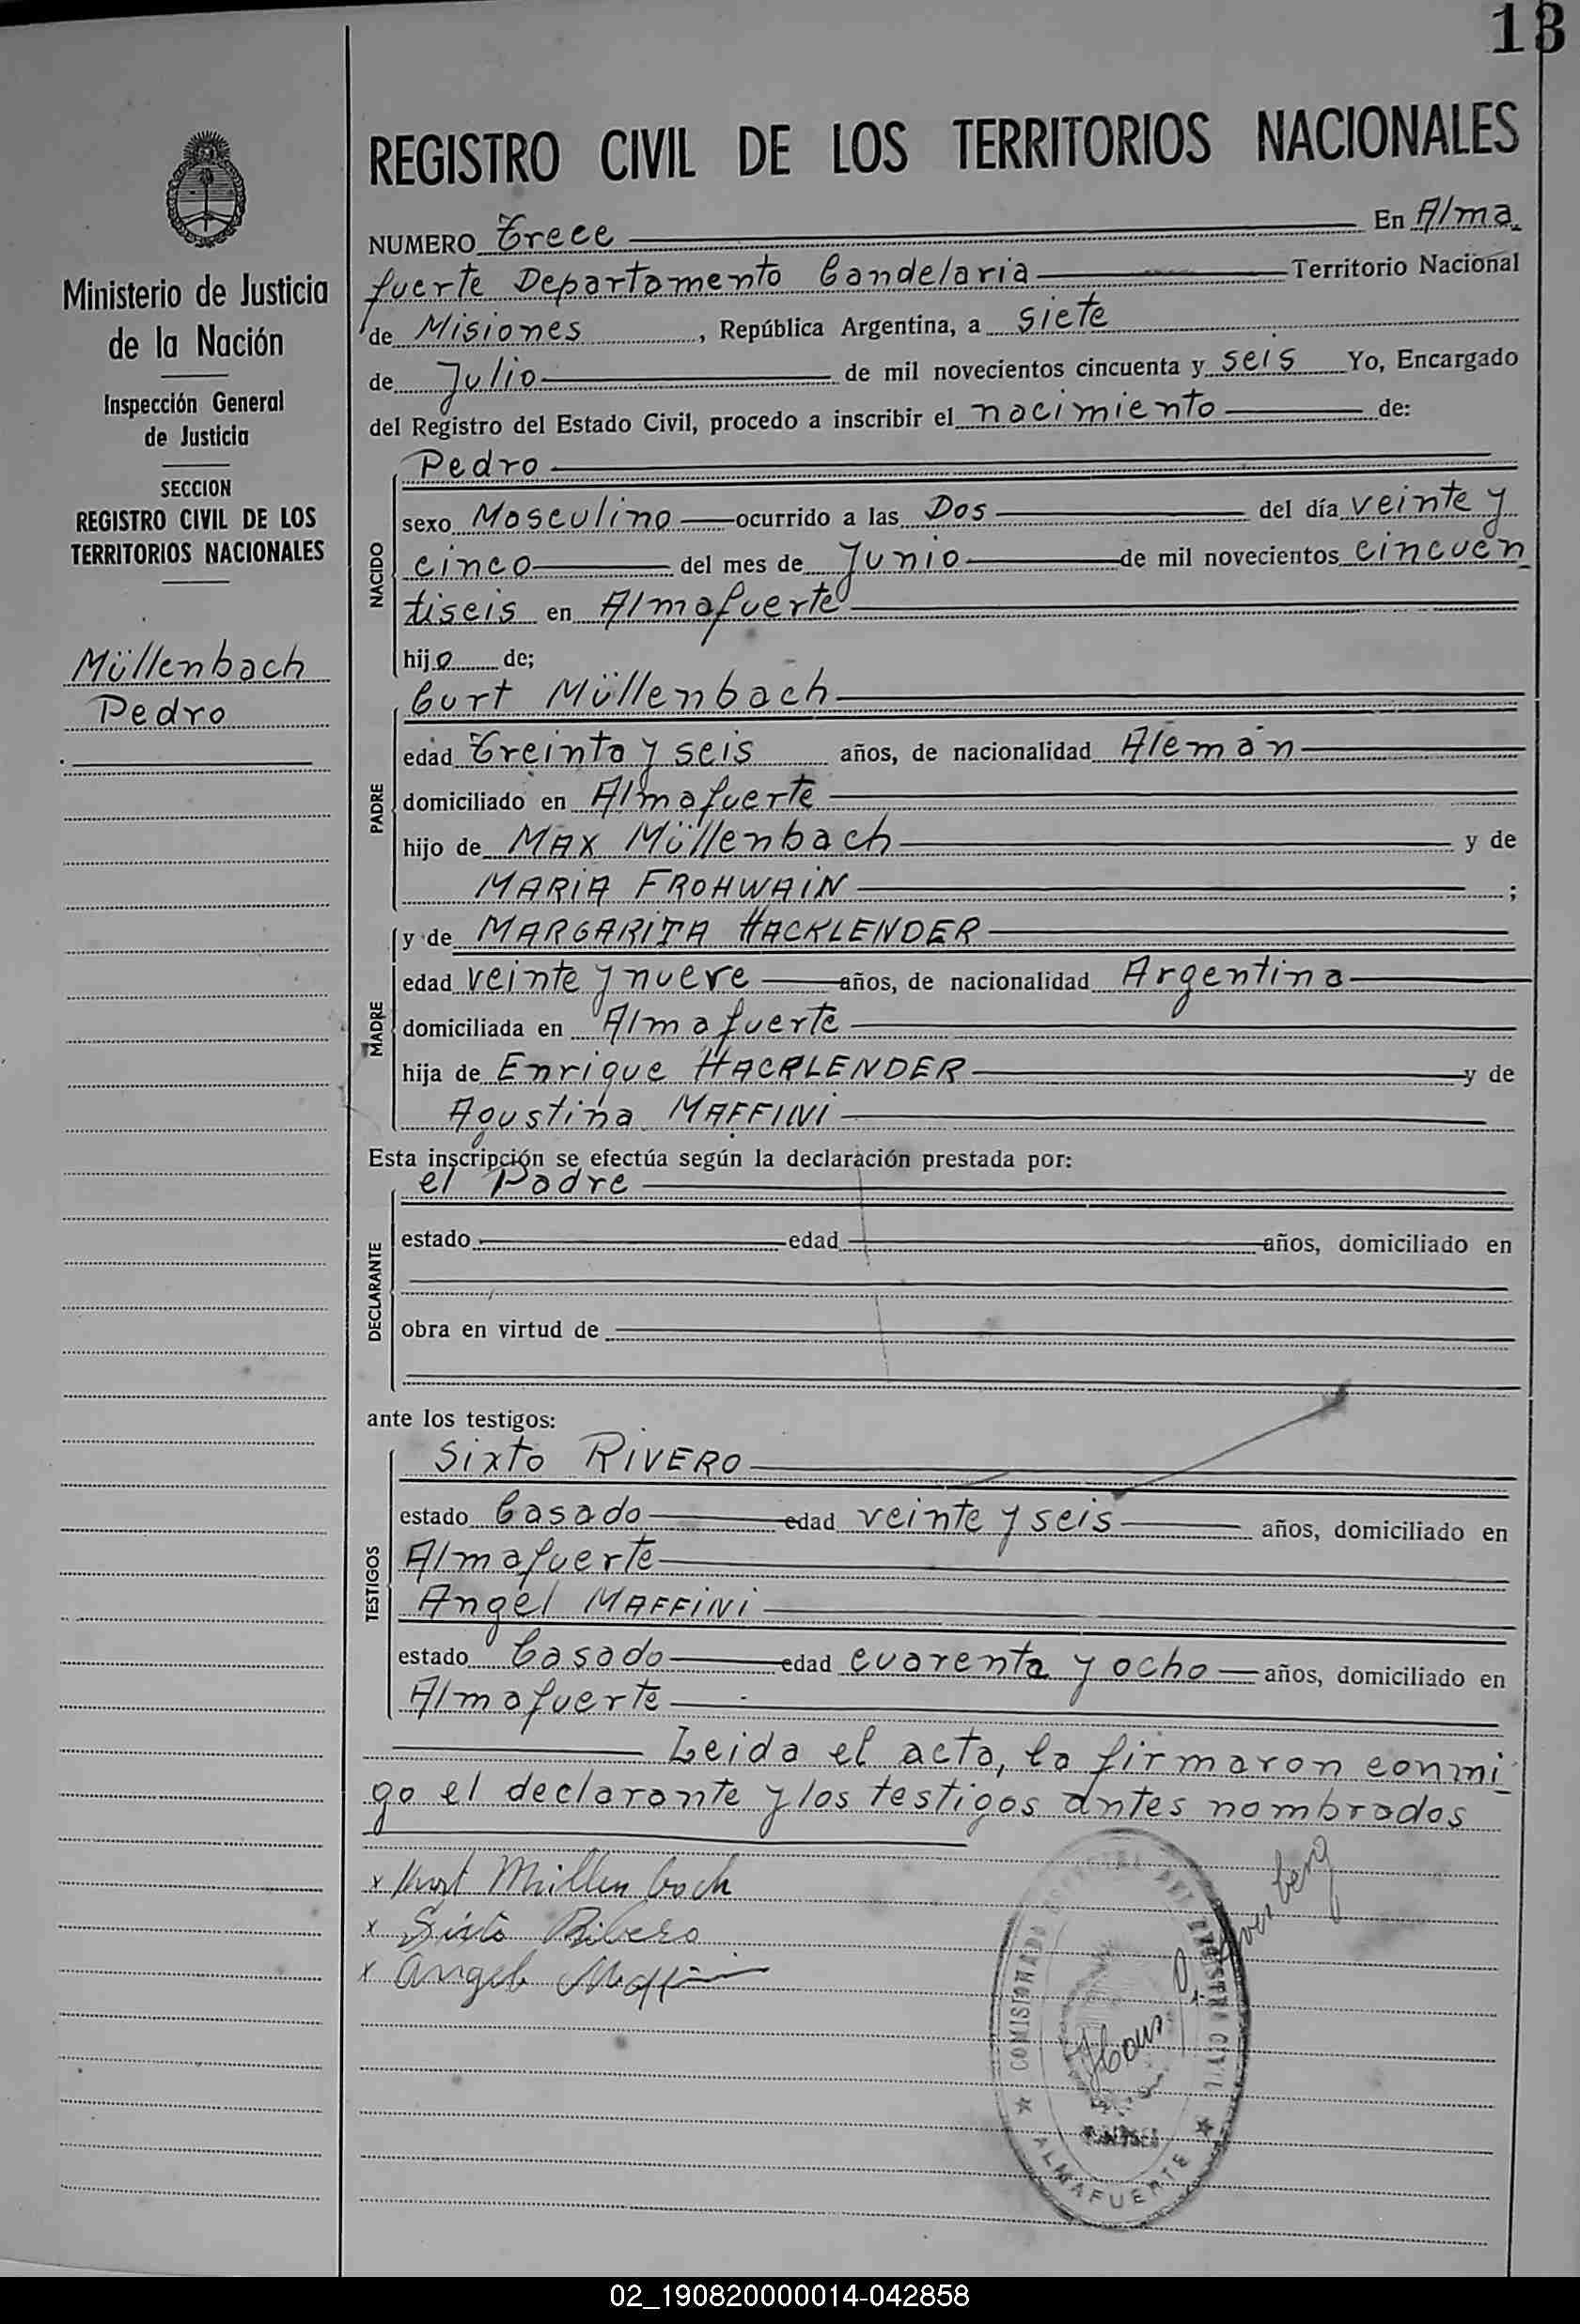 13
REGISTRO CIVIL DE LOS TERRITORIOS NACIONALES
Ministerio de Justicia
de la Nación
Inspección General
de Justicia
SECCION
REGISTRO CIVIL DE LOS
TERRITORIOS NACIONALES
Müllenbach
Pedro
NUMERO Trece En Alma
fuerte Departamento Candelaria Territorio Nacional
de Misiones, República Argentina, a siete
de Julio de mil novecientos cincuenta y seis Yo, Encargado
del Registro del Estado Civil, procedo a inscribir el nacimiento de:
NACIDO
Pedro
sexo Masculino ocurrido a las Dos del día veinte y
cinco del mes de Junio de mil novecientos cincuen
tiseis en Almafuerte
hijo de;
PADRE
Curt Müllenbach
edad Treinta y seis años, de nacionalidad Alemán
domiciliado en Almafuerte
hijo de MAX Müllenbach y de
MARIA FROHWAIN ;
MADRE
y de MARGARITA HACKLENDER
edad veinte y nueve años, de nacionalidad Argentina
domiciliada en Almafuerte
hija de Enrique HACKLENDER y de
Agustina MAFFINI
Esta inscripción se efectúa según la declaración prestada por:
DECLARANTE
el Padre
estado edad años, domiciliado en
obra en virtud de
ante los testigos:
TESTIGOS
Sixto RIVERO
estado Casado edad veinte y seis años, domiciliado en
Almafuerte
Angel MAFFINI
estado Casado edad cuarenta y ocho años, domiciliado en
Almafuerte
Leida el acta, la firmaron conmi
go el declarante y los testigos antes nombrados
x Kurt Müllenbach
x Sixto Ribero
x Angel Maffini
COMISIONADO
CIVIL
ALMAFUERTE
Hans
02_190820000014-042858